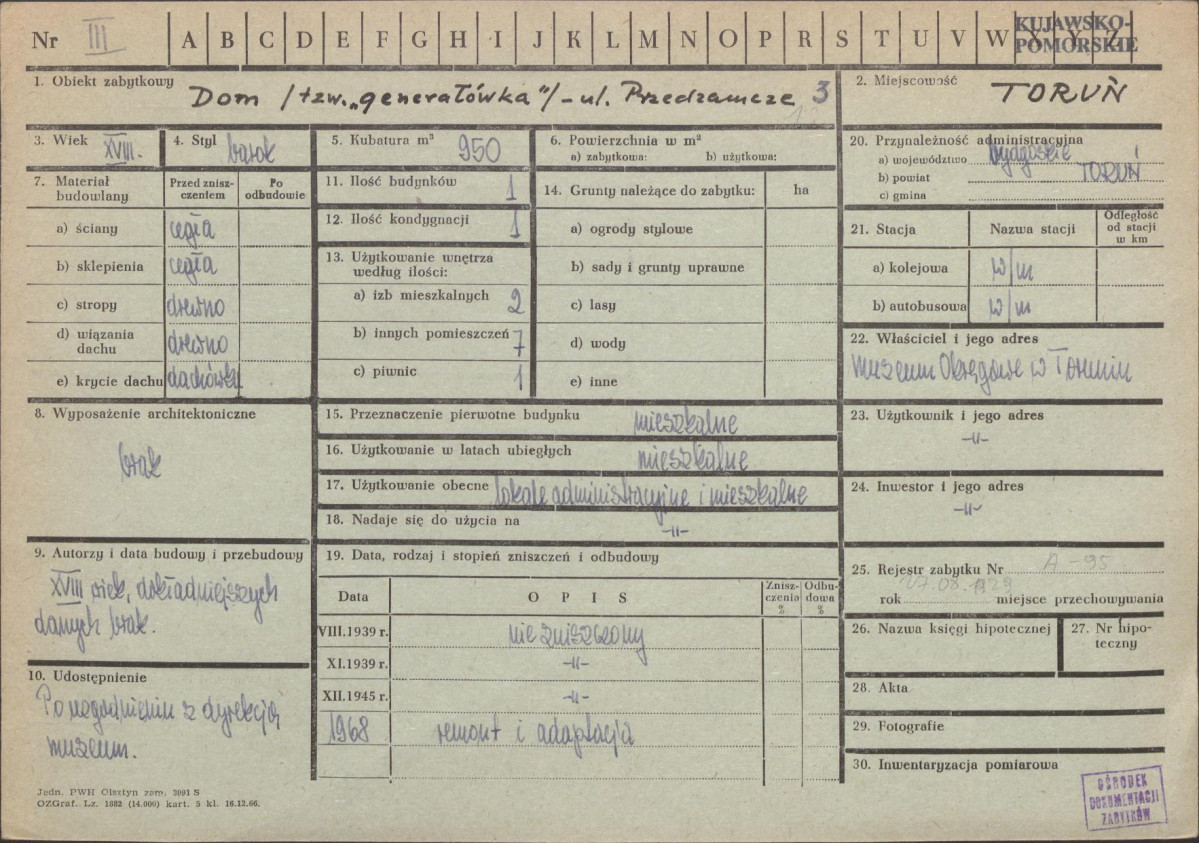 Nr III A B C D E F G H I J K L M N O P R S T U V W X Y Z
KUJAWSKO-
POMORSKIE
1. Obiekt zabytkowy Dom /tzw. „generałówka"/ - ul. Przedzamcze 3
2. Miejscowość TORUŃ
3. Wiek XVIII.
4. Styl barok
5. Kubatura m³ 950
6. Powierzchnia w m²
a) zabytkowa: b) użytkowa:
7. Materiał budowlany
Przed znisz-
czeniem
Po
odbudowie
a) ściany cegła
b) sklepienia cegła
c) stropy drewno
d) wiązania
dachu drewno
e) krycie dachu dachówka
8. Wyposażenie architektoniczne
brak
9. Autorzy i data budowy i przebudowy
XVIII wiek, dokładniejszych
danych brak.
10. Udostępnienie
Po uzgodnieniu z dyrekcją
muzeum.
11. Ilość budynków 1
12. Ilość kondygnacji 1
13. Użytkowanie wnętrza
według ilości:
a) izb mieszkalnych 2
b) innych pomieszczeń 7
c) piwnic 1
14. Grunty należące do zabytku: ha
a) ogrody stylowe
b) sady i grunty uprawne
c) lasy
d) wody
e) inne
15. Przeznaczenie pierwotne budynku mieszkalne
16. Użytkowanie w latach ubiegłych mieszkalne
17. Użytkowanie obecne lokale administracyjne i mieszkalne
18. Nadaje się do użycia na -"-
19. Data, rodzaj i stopień zniszczeń i odbudowy
Data
O P I S
Znisz-
czenia
%
Odbu-
dowa
%
VIII.1939 r. nie zniszczony
XI.1939 r. -"-
XII.1945 r. -"-
1968 remont i adaptacja
20. Przynależność administracyjna
a) województwo bydgoskie
b) powiat TORUŃ
c) gmina
21. Stacja
Nazwa stacji
Odległość
od stacji
w km
a) kolejowa w/m
b) autobusowa w/m
22. Właściciel i jego adres
Muzeum Okręgowe w Toruniu
23. Użytkownik i jego adres
-"-
24. Inwestor i jego adres
-"-
25. Rejestr zabytku Nr A-95
rok 27.08.1929 miejsce przechowywania
26. Nazwa księgi hipotecznej
27. Nr hipo-
teczny
28. Akta
29. Fotografie
30. Inwentaryzacja pomiarowa
Jedn. PWH Olsztyn zam. 3091 S
OZGraf. Lz. 1882 (14.000) kart. 5 kl. 16.12.66.
OŚRODEK
DOKUMENTACJI
ZABYTKÓW